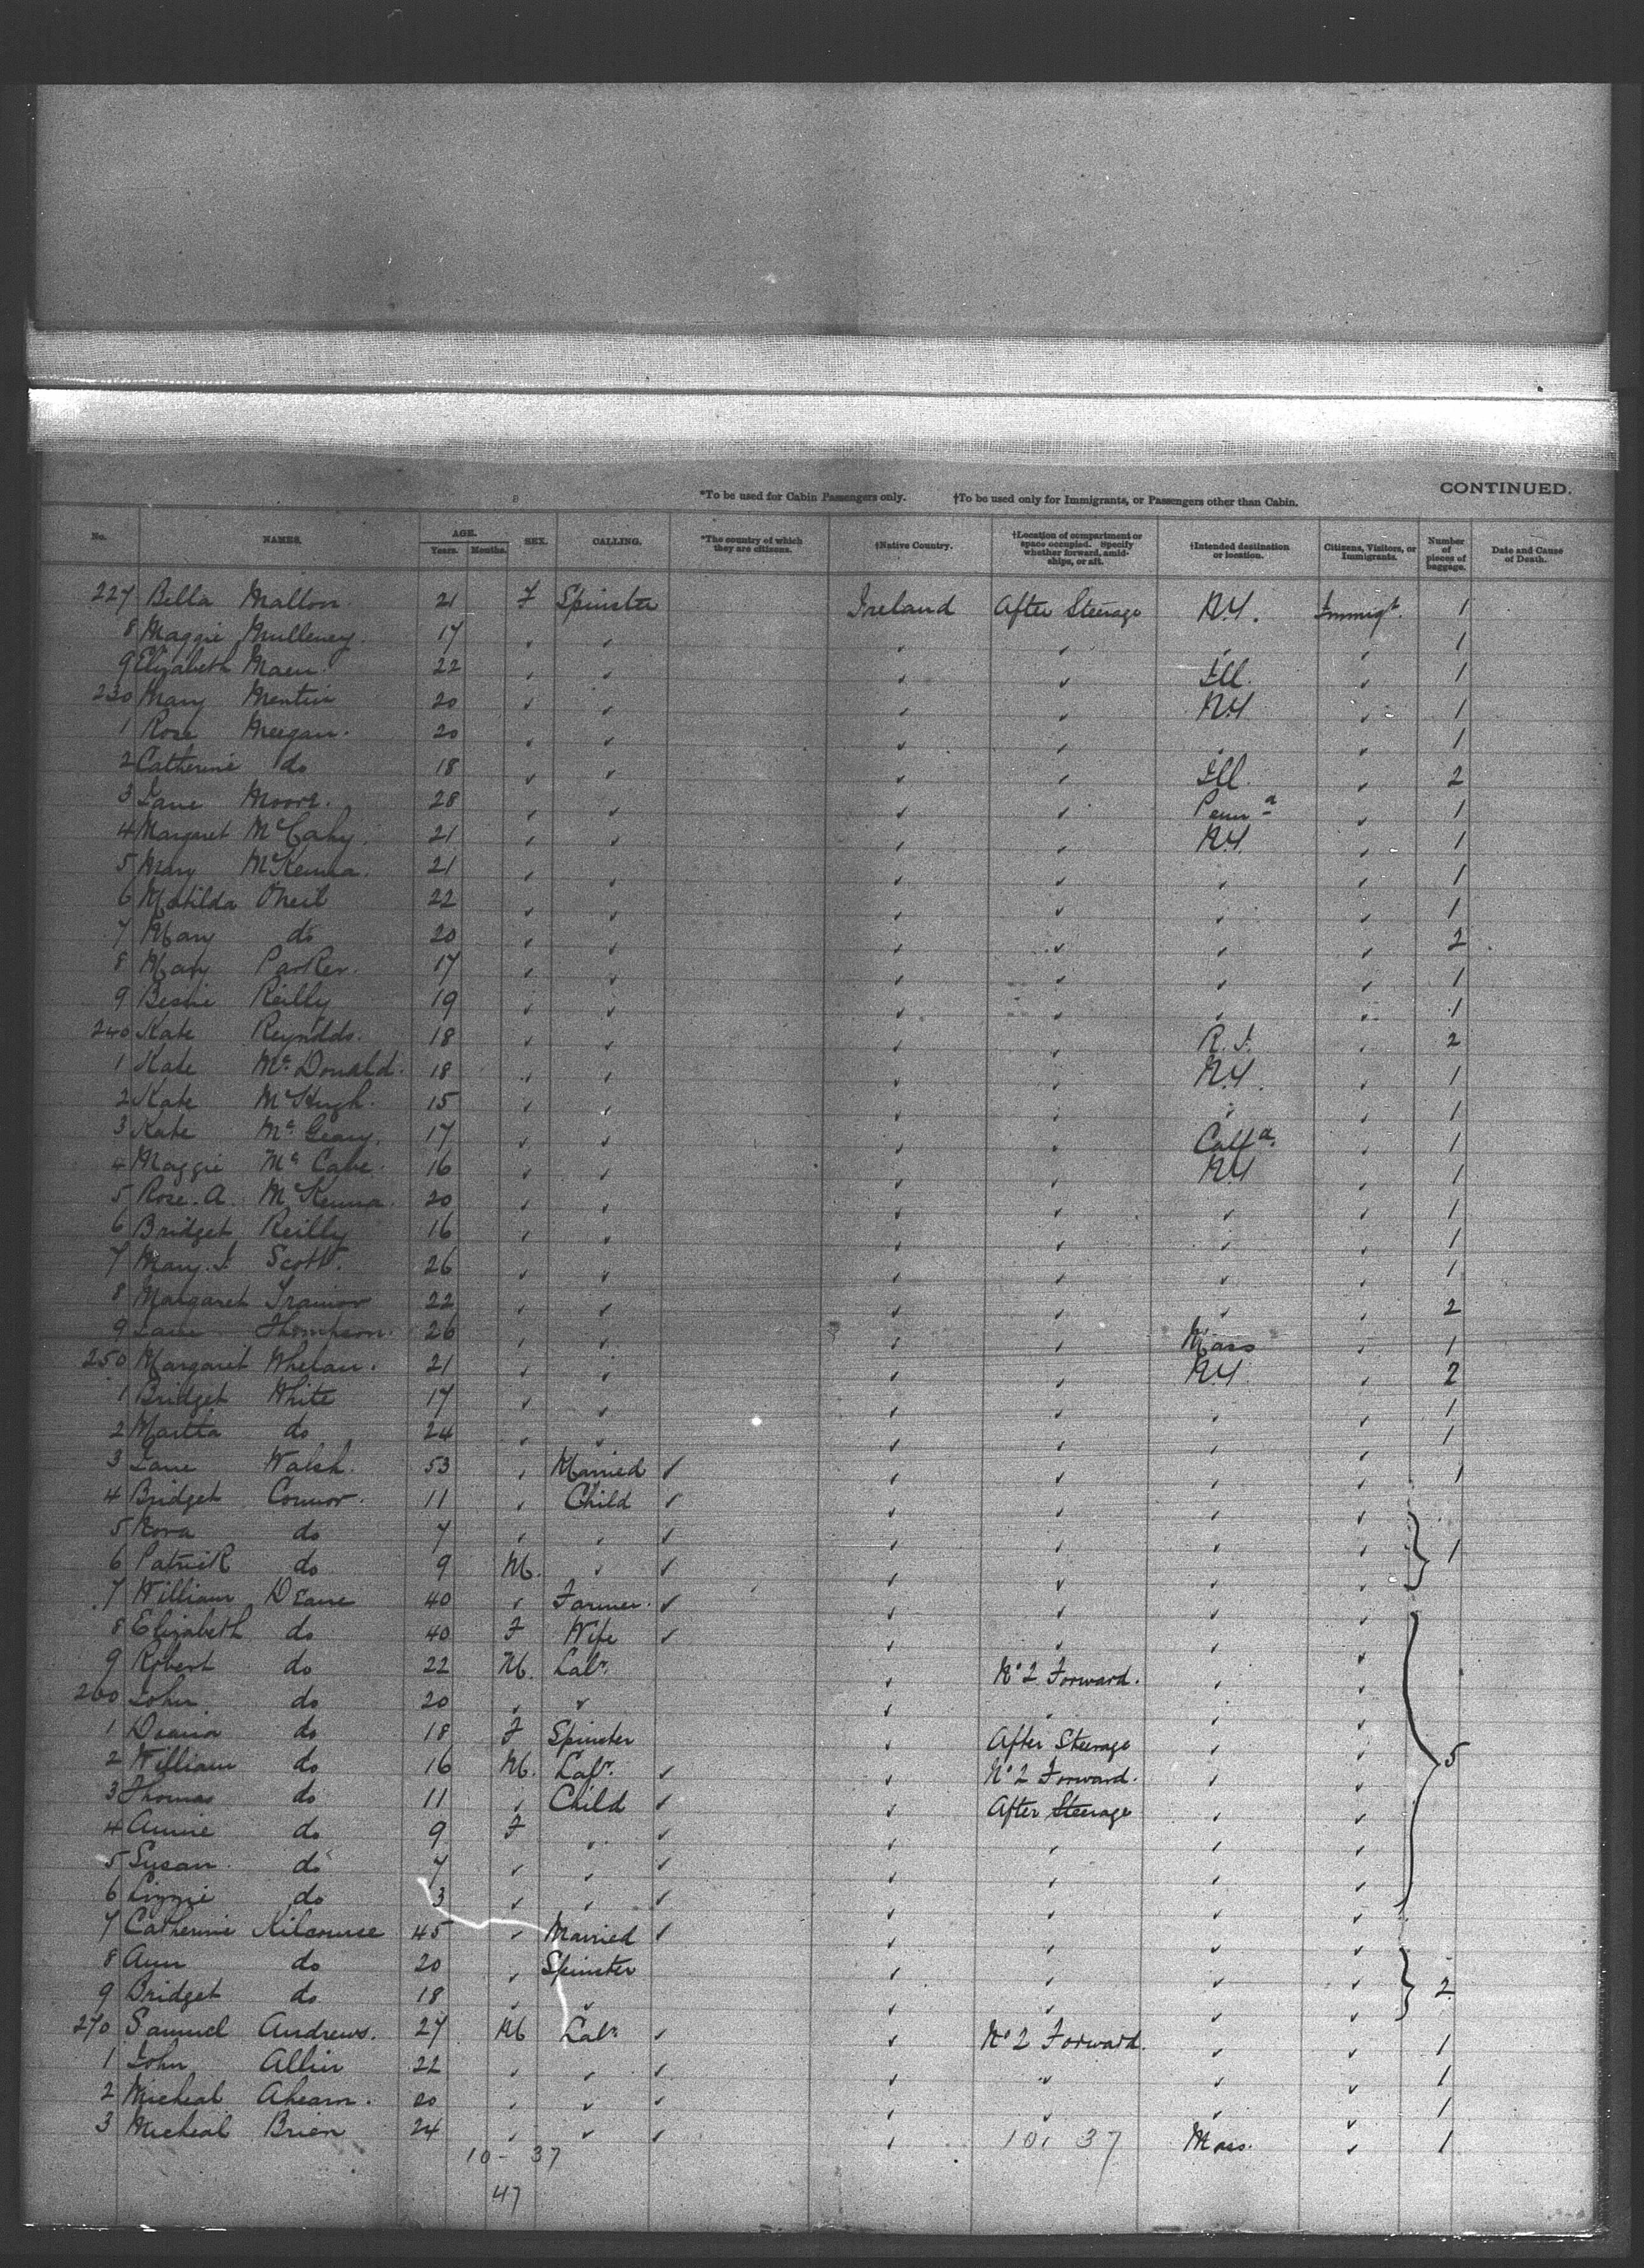 CONTINUED.
*To be used for Cabin Passengers only. †To be used only for Immigrants, or Passengers other than Cabin.
No. NAMES. AGE. Years. Months. SEX. CALLING. *The country of which they are citizens. †Native Country. †Location of compartment or space occupied. Specify whether forward, amidships, or aft. †Intended destination or location. Citizens, Visitors, or Immigrants. Number of pieces of baggage. Date and Cause of Death.
227 Bella Mallon. 21 F Spinster Ireland After Steerage N.Y. Immigt. 1
8 Maggie Mulleney. 17 1
9 Elizabeth 22 Ill. 1
230 Mary Mentin 20 N.Y 1
1 Rose Meegan. 20 1
2 Catherine do 18 Ill. 2
3 Jane Moore. 28 Penna 1
4 Margaret McCahy. 21 N.Y. 1
5 Mary McKenna. 21 1
6 Matilda ONeil 22 1
7 Mary do 20 2
8 Mary Parker. 17 1
9 Bessie Reilly 19 1
240 Kate Reynolds. 18 R.I. 2
1 Kate McDonald. 18 N.Y. 1
2 Kate McHugh. 15 1
3 Kate McGeary. 17 Calfa. 1
4 Maggie McCabe. 16 N.Y 1
5 Rose. A. McKenna. 20 1
6 Bridget Reilly 16 1
7 Mary. J. Scott. 26 1
8 Margaret Trainor 22 2
9 Jane Thompson. 26 Mass 1
250 Margaret Whelan. 21 N.Y. 2
1 Bridget White 17 1
2 Martha do 24 1
3 Jane Walsh. 53 Married 1
4 Bridget Connor. 11 Child
5 Nora do 7
6 Patrick do 9 M. 1
7 William Deane 40 Farmer.
8 Elizabeth do 40 F Wife
9 Robert do 22 M. Labr. No 2 Forward.
260 John do 20
1 do 18 F Spinster After Steerage
2 William do 16 M. Labr. No 2 Forward. 5
3 Thomas do 11 Child After Steerage
4 Annie do 9 F
5 Susan do 7
6 Lizzie do 3
7 Catherine 45 Married
8 Ann do 20 Spinster
9 Bridget do 18 2
270 Samuel Andrews. 27 M Labr No 2 Forward. 1
1 John Allin 22 1
2 Micheal Ahearn. 20 1
3 Micheal Brien 24 Mass. 1
10 - 37 10 37
47